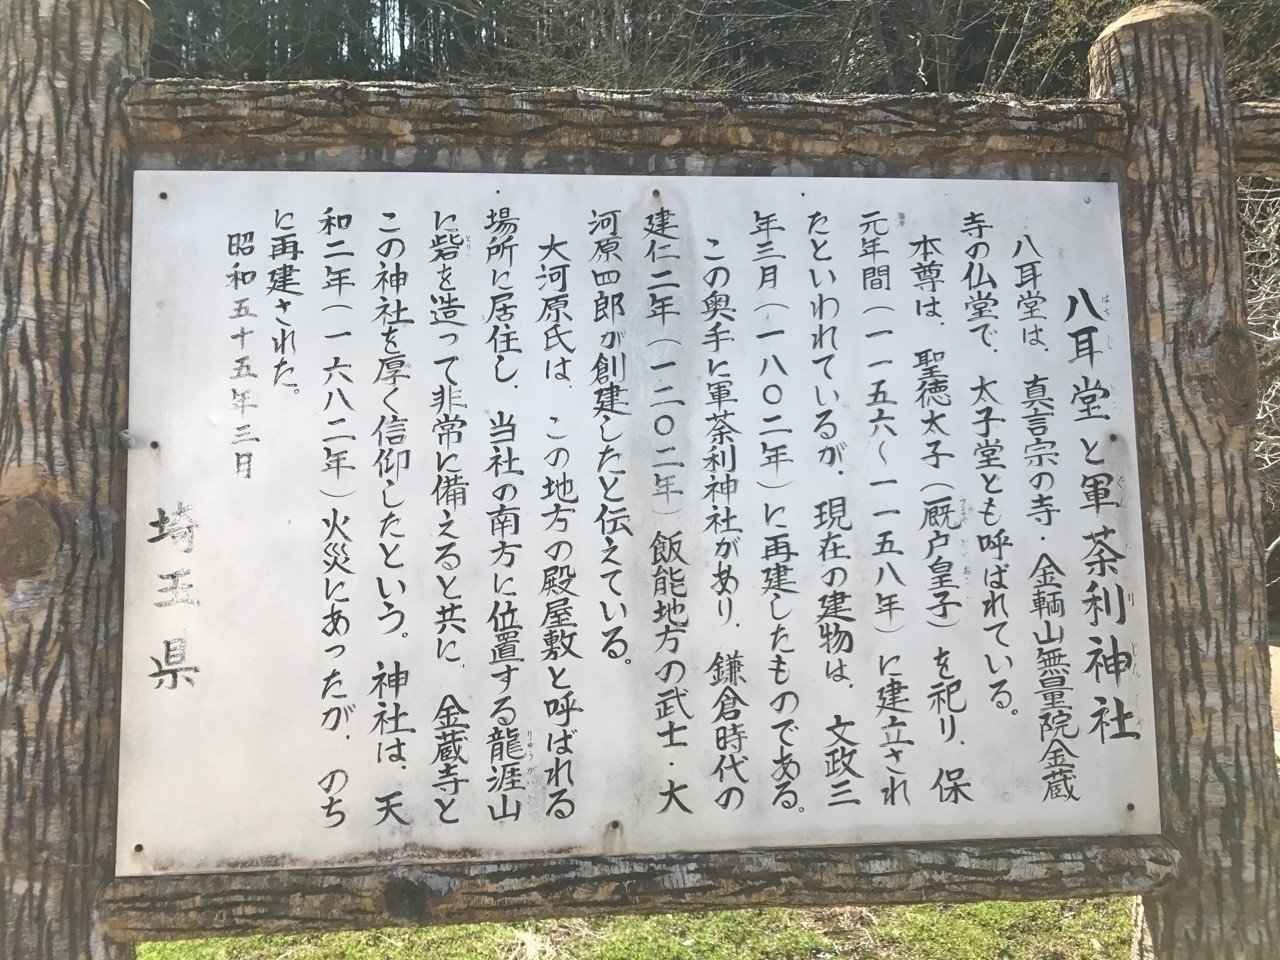 八耳堂と軍荼利神社
八耳堂は、真言宗の寺・金輌山無量院金蔵
寺の仏堂で、太子堂とも呼ばれている。
本尊は、聖徳太子（厩戸皇子）を祀り、保
元年間（一一五六～一一五八年）に建立され
たといわれているが、現在の建物は、文政三
年三月（一八〇二年）に再建したものである。
この奥手に軍荼利神社があり、鎌倉時代の
建仁二年（一二〇二年）飯能地方の武士・大
河原四郎が創建したと伝えている。
大河原氏は、この地方の殿屋敷と呼ばれる
場所に居住し、当社の南方に位置する龍涯山
に砦を造って非常に備えると共に、金蔵寺と
この神社を厚く信仰したという。神社は、天
和二年（一六八二年）火災にあったが、のち
に再建された。
昭和五十五年三月
埼玉県